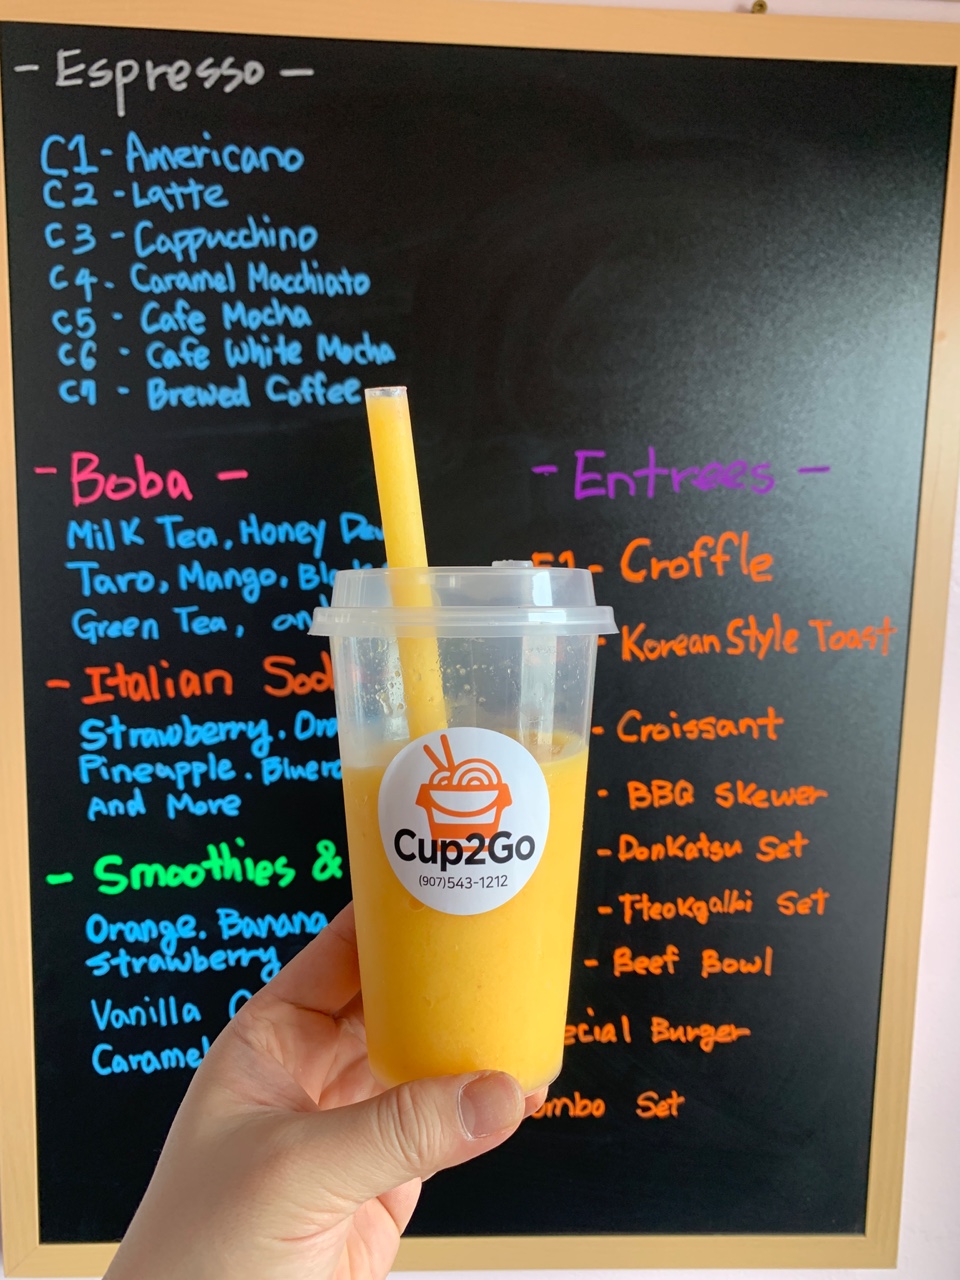 - Espresso -
C1 - Americano
C2 - Latte
C3 - Cappucchino
C4 - Caramel Macchiato
C5 - Cafe Mocha
C6 - Cafe White Mocha
C7 - Brewed Coffee
- Boba -
Milk Tea, Honey
Taro, Mango,
Green Tea,
- Italian
Strawberry.
Pineapple.
And More
- Smoothies &
Orange. Banana
Strawberry
Vanilla
Caramel
- Entrees -
- Croffle
Korean Style Toast
- Croissant
- BBQ Skewer
- DonKatsu Set
- Tteokgalbi Set
- Beef Bowl
Burger
Set
Cup2Go
(907)543-1212